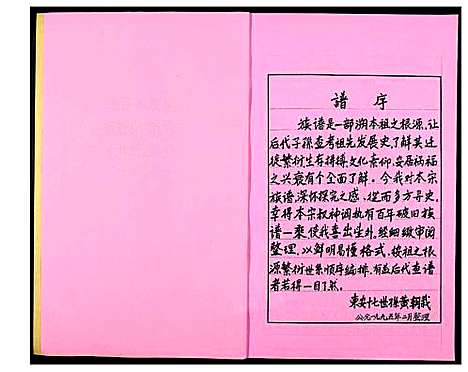 譜序
族谱是一部溯本祖之根源,让
后代子孫查考祖先发展史,了解其迁
徙繁衍生存拼搏,文化素仰,安居祸福
之兴衰有个全面了解。今我对本宗
族谱,深怀探究之感,從而多方寻史,
幸得本宗叔神阔执有百年破旧族
谱一乘,使我喜出望外,经细緻审阅
整理,以鲜明易懂格式,按祖之根
源繁衍世系顺序编排,有益后代查谱
者若得一目了然。
東安十七世孫黄朝哉
公元一九九五年二月整理